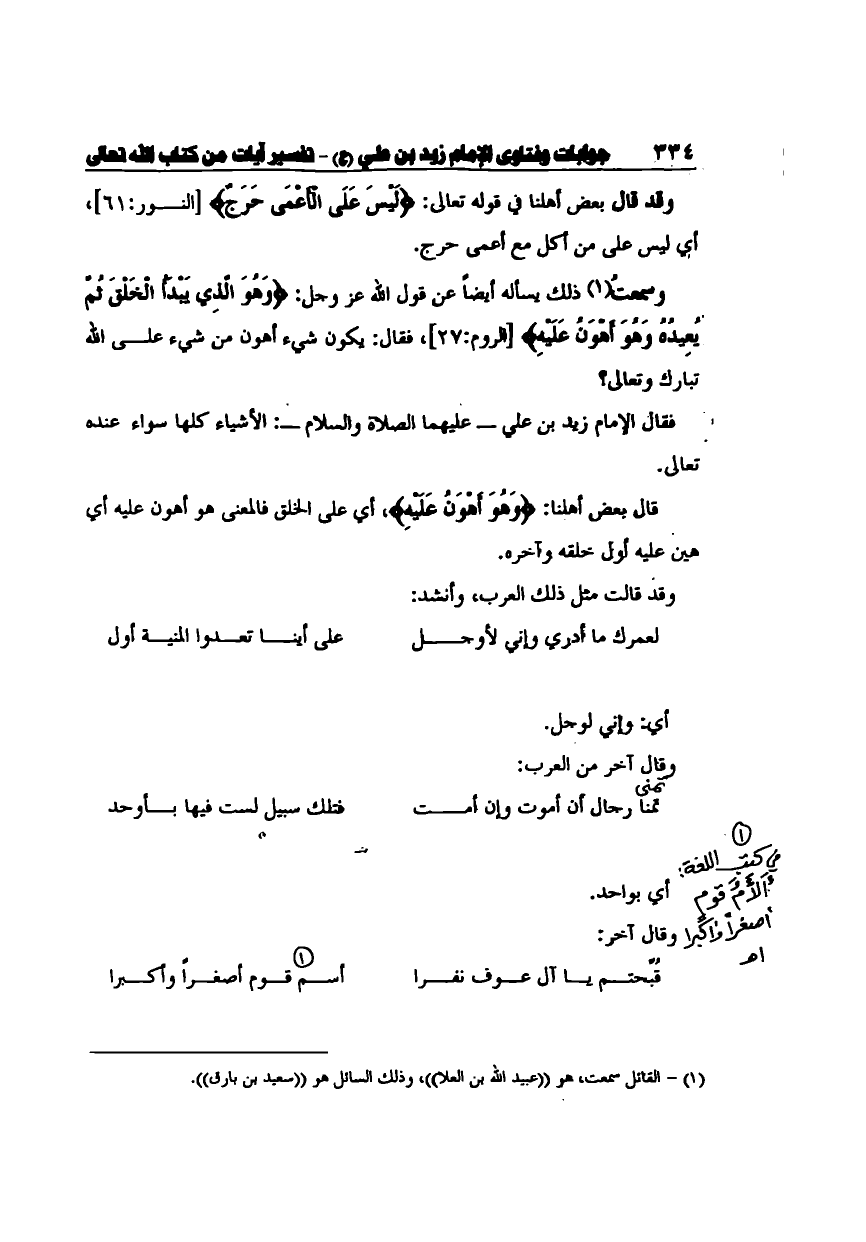 ٣٣٤ جوابات وفتاوى الإمام زيد بن علي (ع) - تفسير آيات من كتاب الله تعالى
وقد قال بعض أهلنا في قوله تعالى: ﴿لَيْسَ عَلَى الْأَعْمَى حَرَجٌ﴾ [النـــور:٦١]،
أي ليس على من أكل مع أعمى حرج.
وسمعتُ(١) ذلك يسأله أيضاً عن قول الله عز وجل: ﴿وَهُوَ الَّذِي يَبْدَأُ الْخَلْقَ ثُمَّ
يُعِيدُهُ وَهُوَ أَهْوَنُ عَلَيْهِ﴾ [الروم:٢٧]، فقال: يكون شيء أهون من شيء علـــى الله
تبارك وتعالى؟
فقال الإمام زيد بن علي ــ عليهما الصلاة والسلام ــ: الأشياء كلها سواء عنده
تعالى.
قال بعض أهلنا: ﴿وَهُوَ أَهْوَنُ عَلَيْهِ﴾، أي على الخلق فالمعنى هو أهون عليه أي
هين عليه أول خلقه وآخره.
وقد قالت مثل ذلك العرب، وأنشد:
لعمرك ما أدري وإني لأوجــــــل على أينـــا تعـــدوا المنيـة أول
أي: وإني لوجل.
وقال آخر من العرب:
تمنى
تمنا رجال أن أموت وإن أمـــــت فتلك سبيل لست فيها بــأوحد
١
في كتب اللغة:
أَلْأَمُ قوم
أصغراً وأكبرا
اهـ
أي بواحد.
وقال آخر:
١
قُبّحتـــم يـــا آل عـــوف نفـــرا أســـم قـــوم أصغـــراً وأكـــبرا
(١) - القائل سمعت، هو ((عبيد الله بن العلا))، وذلك السائل هو ((سعيد بن بارق)).